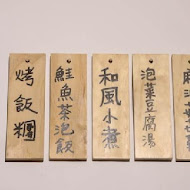 烤飯糰
鮭魚茶泡飯
和風小煮
泡菜豆腐湯